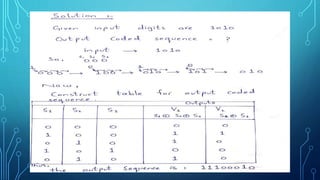 Solution :-
Given input digits are 1010
Output coded sequence = ?
input → 1010
S₁ S₂ S₃
So, 000
000 → 100 → 010 → 101 → 010
Now,
Construct table for output coded
sequence
Outputs
S₁ S₂ S₃ V₁ V₂
S₁⊕ S₂⊕ S₃ S₁⊕ S₃
0 0 0 0 0
1 0 0 1 1
0 1 0 1 0
1 0 1 0 0
0 1 0 1 0
Thus,
the output sequence is : 11100010